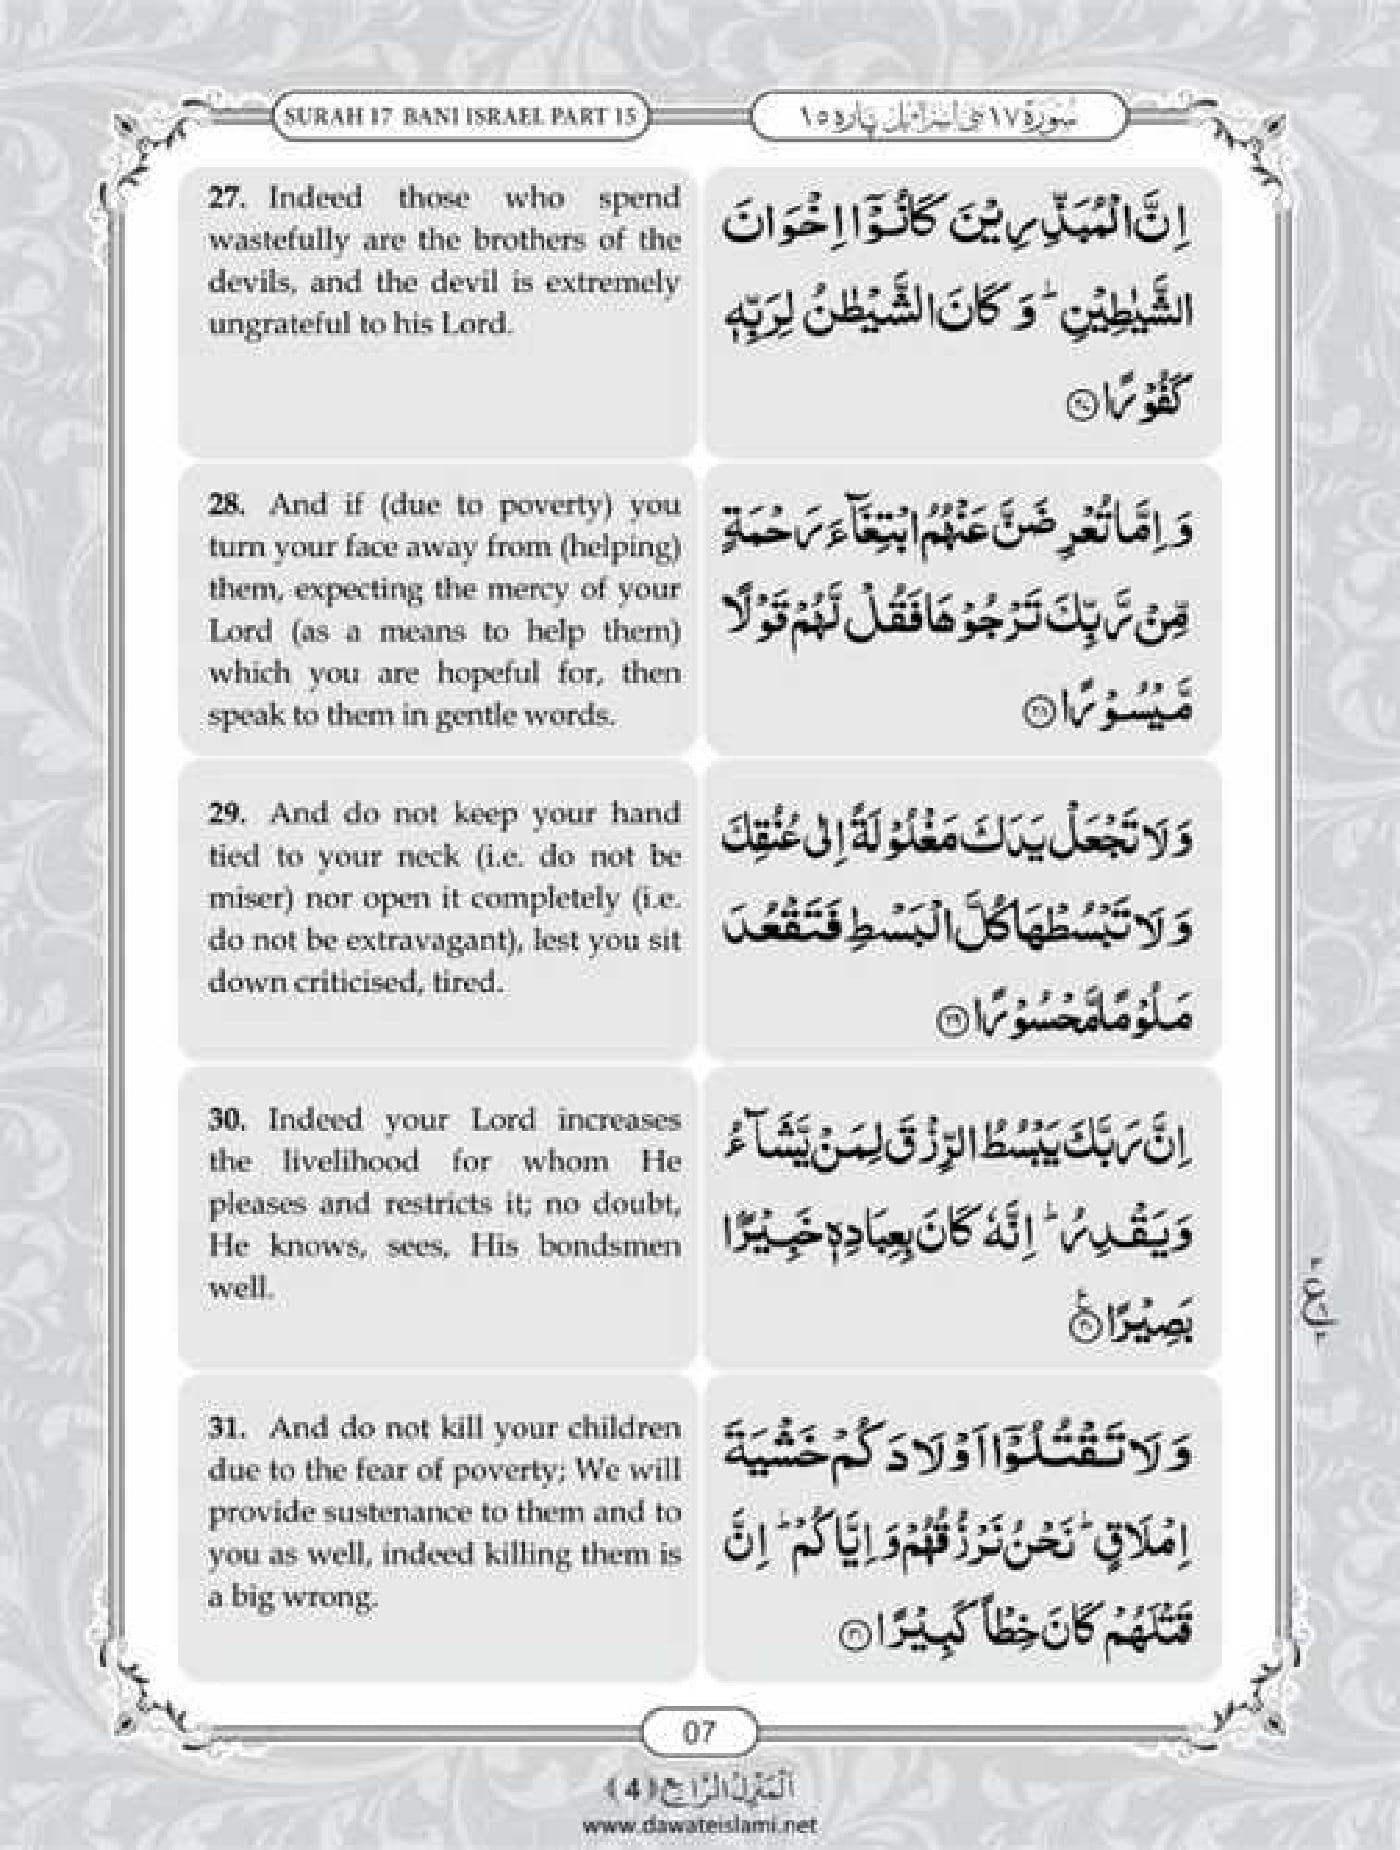 SURAH 17 BANI ISRAEL PART 15
سُورة ١٧ بنی اسرائیل پارہ ١٥
27. Indeed those who spend
wastefully are the brothers of the
devils, and the devil is extremely
ungrateful to his Lord.
اِنَّ الْمُبَذِّرِيْنَ كَانُوْۤا اِخْوَانَ
الشَّيٰطِيْنِ ؕ وَ كَانَ الشَّيْطٰنُ لِرَبِّهٖ
كَفُوْرًا ۝۲۷
28. And if (due to poverty) you
turn your face away from (helping)
them, expecting the mercy of your
Lord (as a means to help them)
which you are hopeful for, then
speak to them in gentle words.
وَ اِمَّا تُعْرِضَنَّ عَنْهُمُ ابْتِغَآءَ رَحْمَةٍ
مِّنْ رَّبِّكَ تَرْجُوْهَا فَقُلْ لَّهُمْ قَوْلًا
مَّيْسُوْرًا ۝۲۸
29. And do not keep your hand
tied to your neck (i.e. do not be
miser) nor open it completely (i.e.
do not be extravagant), lest you sit
down criticised, tired.
وَ لَا تَجْعَلْ يَدَكَ مَغْلُوْلَةً اِلٰى عُنُقِكَ
وَ لَا تَبْسُطْهَا كُلَّ الْبَسْطِ فَتَقْعُدَ
مَلُوْمًا مَّحْسُوْرًا ۝۲۹
30. Indeed your Lord increases
the livelihood for whom He
pleases and restricts it; no doubt,
He knows, sees, His bondsmen
well.
اِنَّ رَبَّكَ يَبْسُطُ الرِّزْقَ لِمَنْ يَّشَآءُ
وَ يَقْدِرُ ؕ اِنَّهٗ كَانَ بِعِبَادِهٖ خَبِيْرًۢا
بَصِيْرًا ۝۳۰
31. And do not kill your children
due to the fear of poverty; We will
provide sustenance to them and to
you as well, indeed killing them is
a big wrong.
وَ لَا تَقْتُلُوْۤا اَوْلَادَكُمْ خَشْيَةَ
اِمْلَاقٍ ؕ نَحْنُ نَرْزُقُهُمْ وَ اِيَّاكُمْ ؕ اِنَّ
قَتْلَهُمْ كَانَ خِطْاً كَبِيْرًا ۝۳۱
07
اَلْمَنْزِلُ الرَّابِع (4)
www.dawateislami.net